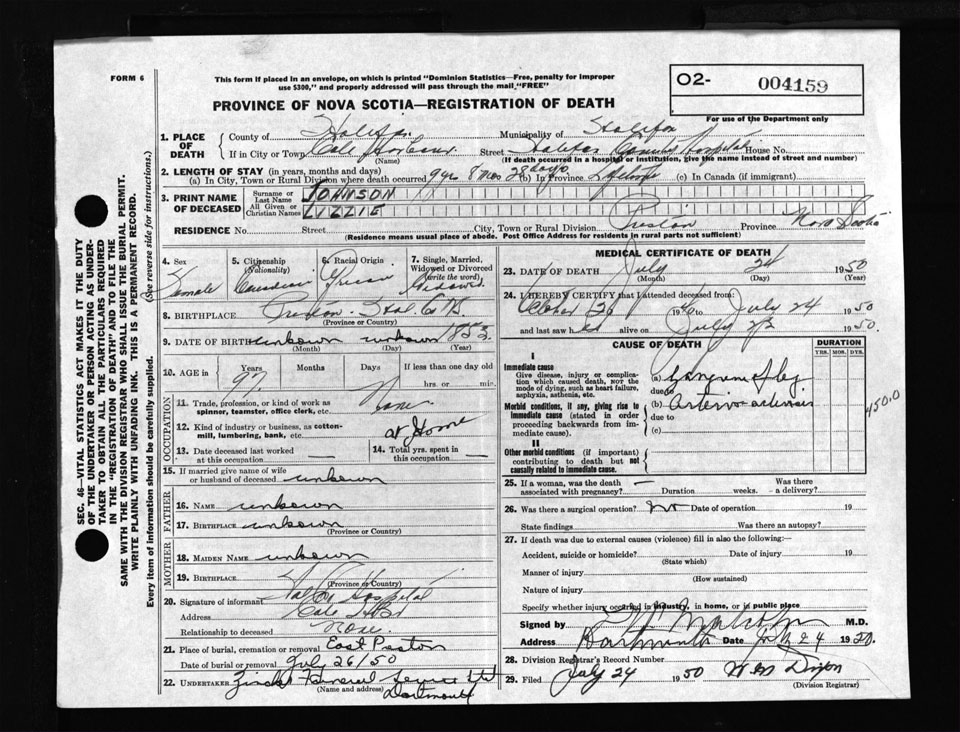 FORM 6
This form if placed in an envelope, on which is printed "Dominion Statistics—Free, penalty for improper
use $300," and properly addressed will pass through the mail "FREE"
O2- 004159
For use of the Department only
PROVINCE OF NOVA SCOTIA—REGISTRATION OF DEATH
SEC. 46—VITAL STATISTICS ACT MAKES IT THE DUTY
OF THE UNDERTAKER OR PERSON ACTING AS UNDER-
TAKER TO OBTAIN ALL THE PARTICULARS REQUIRED
IN THE "REGISTRATION OF DEATH" AND TO FILE THE
SAME WITH THE DIVISION REGISTRAR WHO SHALL ISSUE THE BURIAL PERMIT.
WRITE PLAINLY WITH UNFADING INK. THIS IS A PERMANENT RECORD.
Every item of information should be carefully supplied. (See reverse side for instructions.)
1. PLACE OF DEATH
County of Halifax Municipality of Halifax
If in City or Town Cole Harbour Street Halifax County Hospital House No.
(Name) (If death occurred in a hospital or institution, give the name instead of street and number)
2. LENGTH OF STAY (in years, months and days)
(a) In City, Town or Rural Division where death occurred 9 yrs 8 mos 28 days (b) In Province (c) In Canada (if immigrant)
3. PRINT NAME OF DECEASED
Surname or Last Name JOHNSON
All Given or Christian Names LIZZIE
RESIDENCE No. Street City, Town or Rural Division Preston Province Nova Scotia
(Residence means usual place of abode. Post Office Address for residents in rural parts not sufficient)
4. Sex Female
5. Citizenship (Nationality) Canadian
6. Racial Origin
7. Single, Married, Widowed or Divorced (write the word) Widowed
8. BIRTHPLACE Preston Hal. Co N.S.
(Province or Country)
9. DATE OF BIRTH unknown unknown 1853
(Month) (Day) (Year)
10. AGE in Years 97 Months Days If less than one day
hrs. or min.
OCCUPATION
11. Trade, profession, or kind of work as
spinner, teamster, office clerk, etc. None
12. Kind of industry or business, as cotton-
mill, lumbering, bank, etc. at Home
13. Date deceased last worked
at this occupation —
14. Total yrs. spent in
this occupation —
15. If married give name of wife
or husband of deceased unknown
FATHER
16. Name unknown
17. Birthplace unknown
(Province or Country)
MOTHER
18. Maiden Name unknown
19. Birthplace
(Province or Country)
20. Signature of informant Hospital
Address Cole Hbr
Relationship to deceased none
21. Place of burial, cremation or removal East Preston
Date of burial or removal July 26/50
22. UNDERTAKER Funeral Service Ltd
(Name and address) Dartmouth
MEDICAL CERTIFICATE OF DEATH
23. DATE OF DEATH July 24 1950
(Month) (Day)
24. I HEREBY CERTIFY that I attended deceased from:
October 26 19 to July 24 1950
and last saw her alive on July 23 1950.
CAUSE OF DEATH
DURATION
YRS. MOS. DYS.
I
Immediate cause
Give disease, injury or compli-
cation which caused death, NOT the
mode of dying, such as heart failure,
asphyxia, asthenia, etc.
(a) Gangrene of leg
due to
Morbid conditions, if any, giving rise to
immediate cause (stated in order
proceeding backwards from im-
mediate cause).
(b)
due to
(c)
450.0
II
Other morbid conditions (if important)
contributing to death but not
causally related to immediate cause.
25. If a woman, was the death
associated with pregnancy? — Duration weeks. Was there
- a delivery?
26. Was there a surgical operation? no Date of operation 19
State findings Was there an autopsy?
27. If death was due to external causes (violence) fill in also the following:—
Accident, suicide or homicide? Date of injury 19
(State which)
Manner of injury
(How sustained)
Nature of injury
Specify whether injury occurred in industry, in home, or in public place
Signed by M.D.
Address Dartmouth Date July 24 1950.
28. Division Registrar's Record Number
29. Filed July 24 1950 Dixon
(Division Registrar)